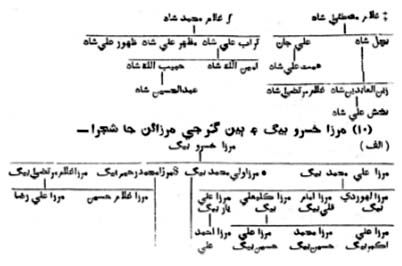 غلام مصطفيٰ شاه غلام محمد شاه
نهال شاه علي جان تراب علي شاه مظهر علي شاه ظهور علي شاه
همت علي شاه امين الله شاه حبيب الله شاه
زين العابدين شاه غلام مرتضيٰ شاه عبدالحسين شاه
بخش علي شاه
(10) مرزا خسرو بيگ ۽ ٻين گرجي مرزائن جا شجرا—
(الف) مرزا خسرو بيگ
مرزا علي محمد بيگ مرزا ولي محمد بيگ مرزا محمد رحيم بيگ مرزا غلام مرتضيٰ بيگ
مرزا بيگ مرزا امام قلي بيگ مرزا ڪلبعلي بيگ مرزا علي يار بيگ مرزا غلام حسين مرزا علي رضا
مرزا علي اڪبر بيگ مرزا محمد حسن بيگ مرزا حسين بيگ مرزا احمد علي